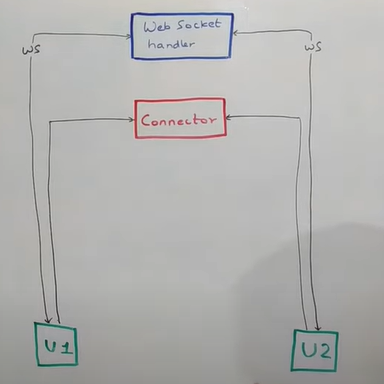 Web Socket
handler
WS
WS
Connector
U1
U2